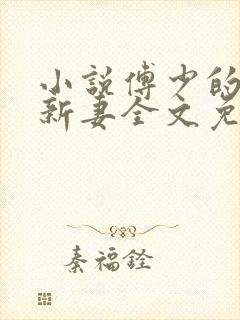 小说傅少的
新妻全文免
秦福铨